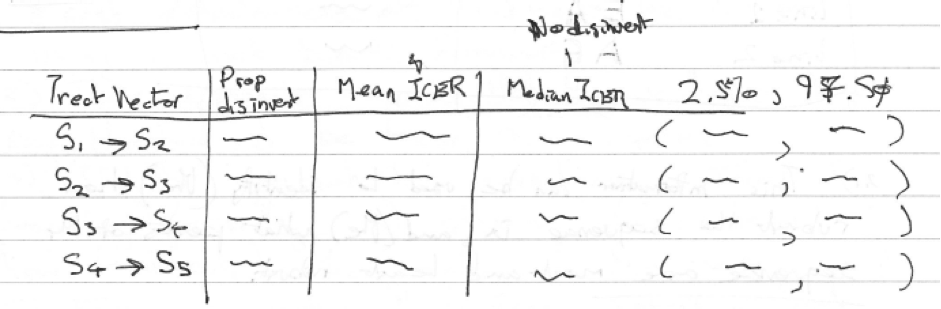 No disinvest
Treat Vector Prop disinvest Mean ICER Median ICER 2.5%, 97.5%
S1 → S2 ~ ~ ~ ( ~ , ~ )
S2 → S3 ~ ~ ~ ( ~ , ~ )
S3 → S4 ~ ~ ~ ( ~ , ~ )
S4 → S5 ~ ~ ~ ( ~ , ~ )